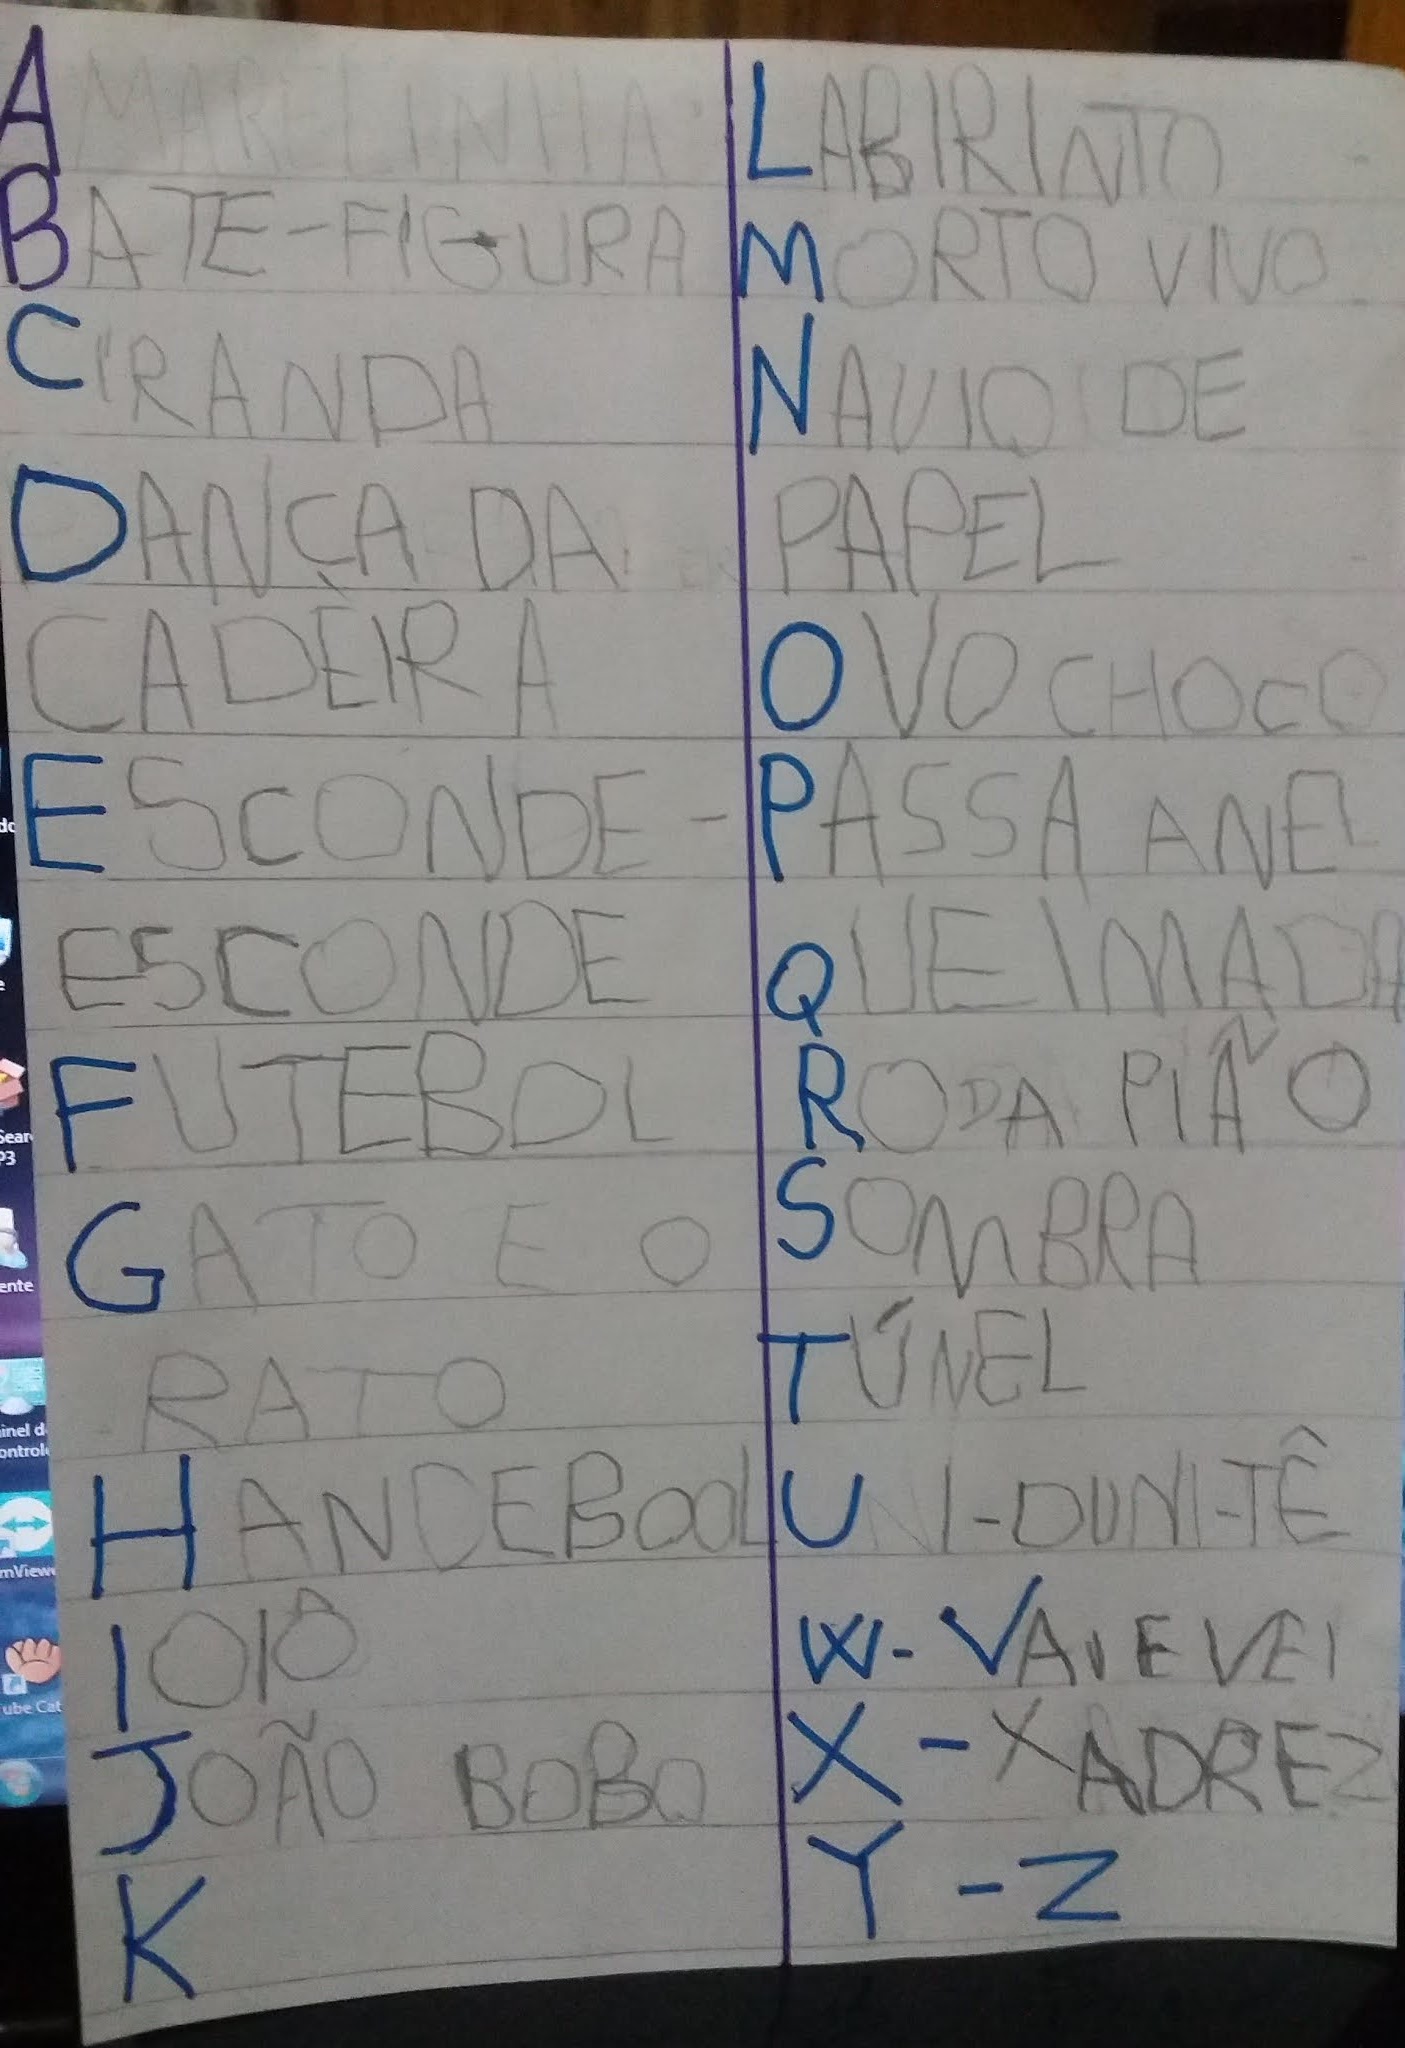 AMARELINHA
BATE-FIGURA
CIRANDA
DANÇA DA
CADEIRA
ESCONDE-
ESCONDE
FUTEBOL
GATO E O
RATO
HANDEBOOL
IOIO
JOÃO BOBO
K
LABIRINTO
MORTO VIVO
NAVIO DE
PAPEL
OVO CHOCO
PASSA ANEL
QUEIMADA
RODA PIÃO
SOMBRA
TÚNEL
UNI-DUNI-TÊ
W- VAI E VEI
X - XADREZ
Y - Z